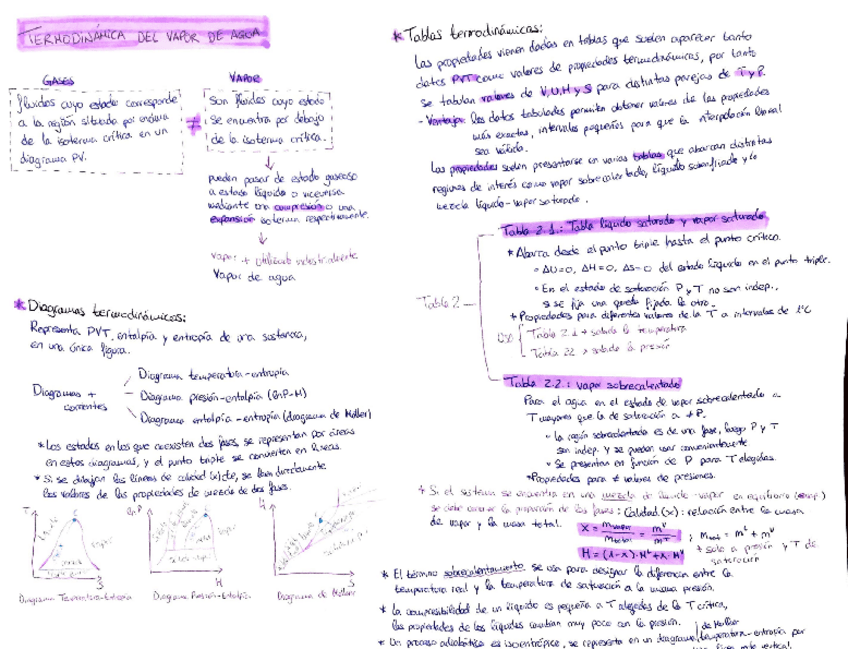 TERMODINÁMICA DEL VAPOR DE AGUA
GASES
fluidos cuyo estado corresponde
a la región situada por encima
de la isoterma crítica en un
diagrama PV.
≠
VAPOR
Son fluidos cuyo estado
se encuentra por debajo
de la isoterma crítica.
pueden pasar de estado gaseoso
a estado líquido o viceversa
mediante una compresión o una
expansión isoterma respectivamente.
vapor + utilizado industrialmente
Vapor de agua
* Diagramas termodinámicos:
Representa PVT, entalpía y entropía de una sustancia,
en una única figura.
Diagramas +
corrientes
Diagrama temperatura-entropía
Diagrama presión-entalpía (lnP-H)
Diagrama entalpía-entropía (diagrama de Mollier)
* Los estados en los que coexisten dos fases, se representan por áreas
en estos diagramas, y el punto triple se convierten en líneas.
* Si se dibujan las líneas de calidad (x) cte, se leen directamente
los valores de las propiedades de mezcla de dos fases.
T
C
S
Diagrama Temperatura-Entropía
lnP
H
Diagrama Presión-Entalpía
H
S
Diagrama de Mollier
* Tablas termodinámicas:
Las propiedades vienen dadas en tablas que suelen aparecer tanto
datos PVT como valores de propiedades termodinámicas, por tanto
se tabulan valores de V, U, H y S para distintas parejas de T y P.
- Ventaja: los datos tabulados permiten obtener valores de las propiedades
más exactas, intervalos pequeños para que la interpolación lineal
sea válida.
Las propiedades suelen presentarse en varias tablas que abarcan distintas
regiones de interés como vapor sobrecalentado, líquido subenfriado y/o
mezcla líquido-vapor saturado.
Tabla 2
Tabla 2.1.: Tabla líquido saturado y vapor saturado
* Abarca desde el punto triple hasta el punto crítico.
∘ ΔU=0, ΔH=0, ΔS=0 del estado líquido en el punto triple.
∘ En el estado de saturación P y T no son indep.,
si se fija una queda fijada la otra.
+ Propiedades para diferentes valores de la T a intervalos de 1°C
Tabla 2.1 → sabida la temperatura
Tabla 2.2 → sabida la presión
Tabla 2.2.: vapor sobrecalentado
Para el agua en el estado de vapor sobrecalentado a
T mayores que la de saturación a ≠ P.
∘ La región sobrecalentada es de una fase, luego P y T
son indep. y se pueden usar convenientemente.
∘ Se presentan en función de P para T elegidas.
*Propiedades para ≠ valores de presiones.
+ Si el sistema se encuentra en una mezcla de líquido-vapor en equilibrio
se debe conocer la proporción de las fases: Calidad (x): relación entre la masa
de vapor y la masa total.
X = m vapor / m total = m^v / m^T ; m tot = m^L + m^v
H = (1-x)·H^L + x·H^v
+ solo a presión y T de
saturación
* El término sobrecalentamiento se usa para designar la diferencia entre la
temperatura real y la temperatura de saturación a la misma presión.
* La compresibilidad de un líquido es pequeña a T alejadas de la T crítica,
las propiedades de los líquidos cambian muy poco con la presión.
de Mollier
* Un proceso adiabático es isoentrópico, se representa en un diagrama temperatura-entropía por
línea vertical.